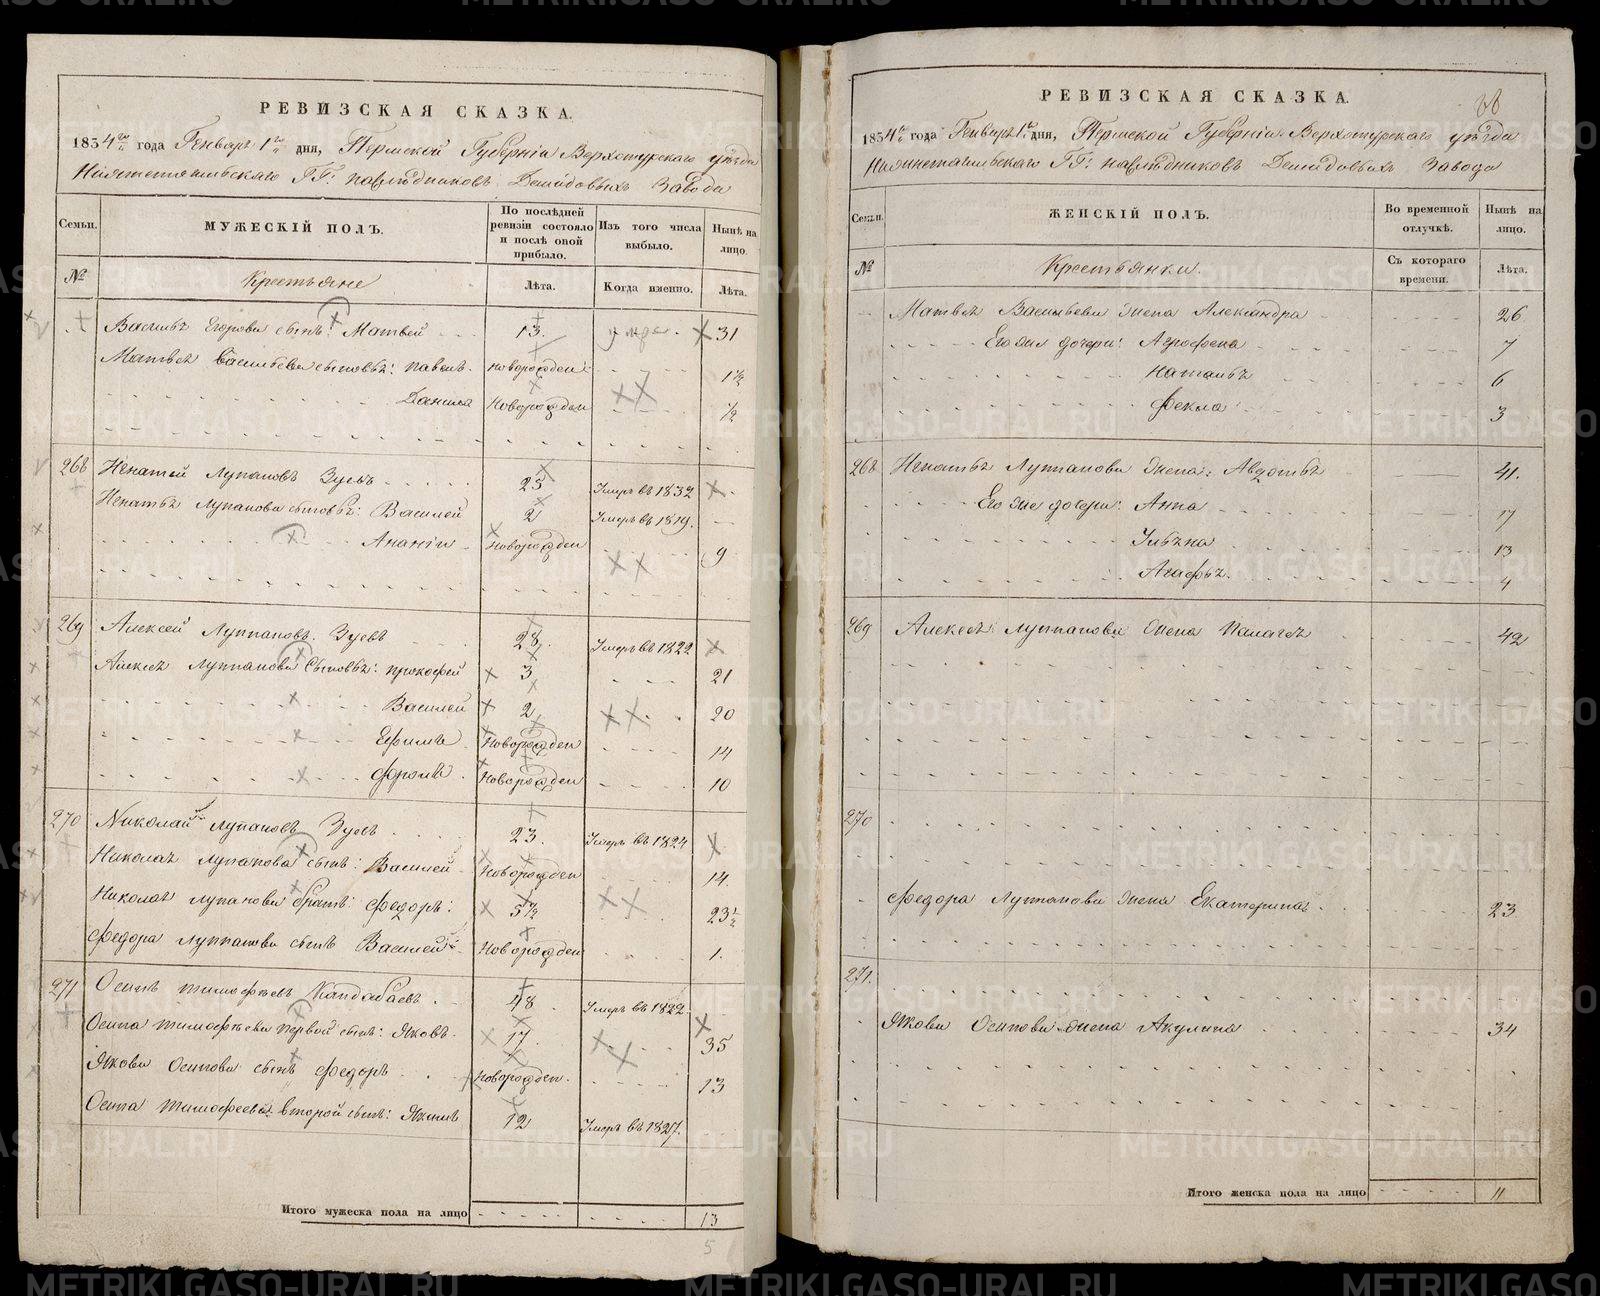 РЕВИЗСКАЯ СКАЗКА.
1834 года Генваря 1 дня, Пермской Губерніи Верхотурскаго уѣзда
Нижнетагильскаго ГГ: наслѣдниковъ Демидовыхъ Завода
Семьи. МУЖЕСКІЙ ПОЛЪ. По послѣдней ревизіи состояло и послѣ оной прибыло. Изъ того числа выбыло. Нынѣ на лицо.
№ Крестьяне Лѣта. Когда именно. Лѣта.
Василья Егорова сынъ: Матвей 13. 31
Матвея Васильева сыновья: Павелъ новорожден 1½
Данила Новорожден ½
268 Игнатей Луппановъ Зуевъ 25 Умеръ въ 1832
Игнатья Лупанова сыновья: Василей 2 Умеръ въ 1819.
Ананій Новорожден 9
269 Алексей Луппановъ Зуевъ 28. Умеръ въ 1822
Алексея Луппанова Сыновья: Прокофей 3 21
Василей 2 20
Ефимъ Новорожден 14
Фролъ Новорожден 10
270 Николай Лупановъ Зуевъ 23. Умеръ въ 1824
Николая Лупанова сынъ: Василей Новорожден 14.
Николая Лупанова братъ: Федоръ: 5½ 23½
Федора Луппанова сынъ Василей Новорожден 1.
271 Осипъ Тимофѣевъ Кандабаевъ 48 Умеръ въ 1822.
Осипа Тимофѣева первой сынъ: Яковъ. 17. 35
Якова Осипова сынъ Федоръ Новорожден. 13
Осипа Тимофеева второй сынъ: Якимъ 12 Умеръ въ 1827.
Итого мужеска пола на лицо 13
5
РЕВИЗСКАЯ СКАЗКА.
1834 года Генваря 1 дня, Пермской Губерніи Верхотурскаго уѣзда
Нижнетагильскаго ГГ: наслѣдниковъ Демидовыхъ Завода
Семьи. ЖЕНСКІЙ ПОЛЪ. Во временной отлучкѣ. Нынѣ на лицо.
№ Крестьянки. Съ котораго времени. Лѣта.
Матвея Васильева жена Александра 26
Его же дочери: Агрофена 7
Наталья 6
Фекла 3
268 Игнатья Луппанова жена: Авдотья 41.
Его же дочери: Анна 17
Ульяна 13
Агафья. 4
269 Алексея Луппанова жена Палагея 42
270
Федора Луппанова жена Екатерина 23
271.
Якова Осипова жена Акулина 34
Итого женска пола на лицо 11
METRIKI.GASO-URAL.RU